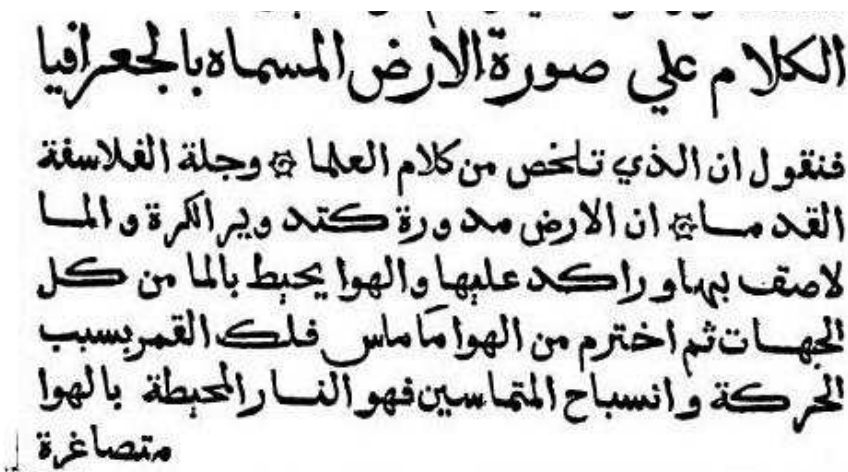 الكلام علي صورة الارض المسماه بالجعرافيا
فنقول ان الذي تلخص من كلام العلما ۞ وجلة الفلاسفة
القدمسا ۞ ان الارض مدورة كتدوير الكرة والمسا
لاصق بها وراكد عليها والهوا يحيط بالما من كل
الجهات ثم اخترم من الهوا ما ماس فلك القمر بسبب
الحركة وانسباح المتماسين فهو النار المحيطة بالهوا
متصاغرة